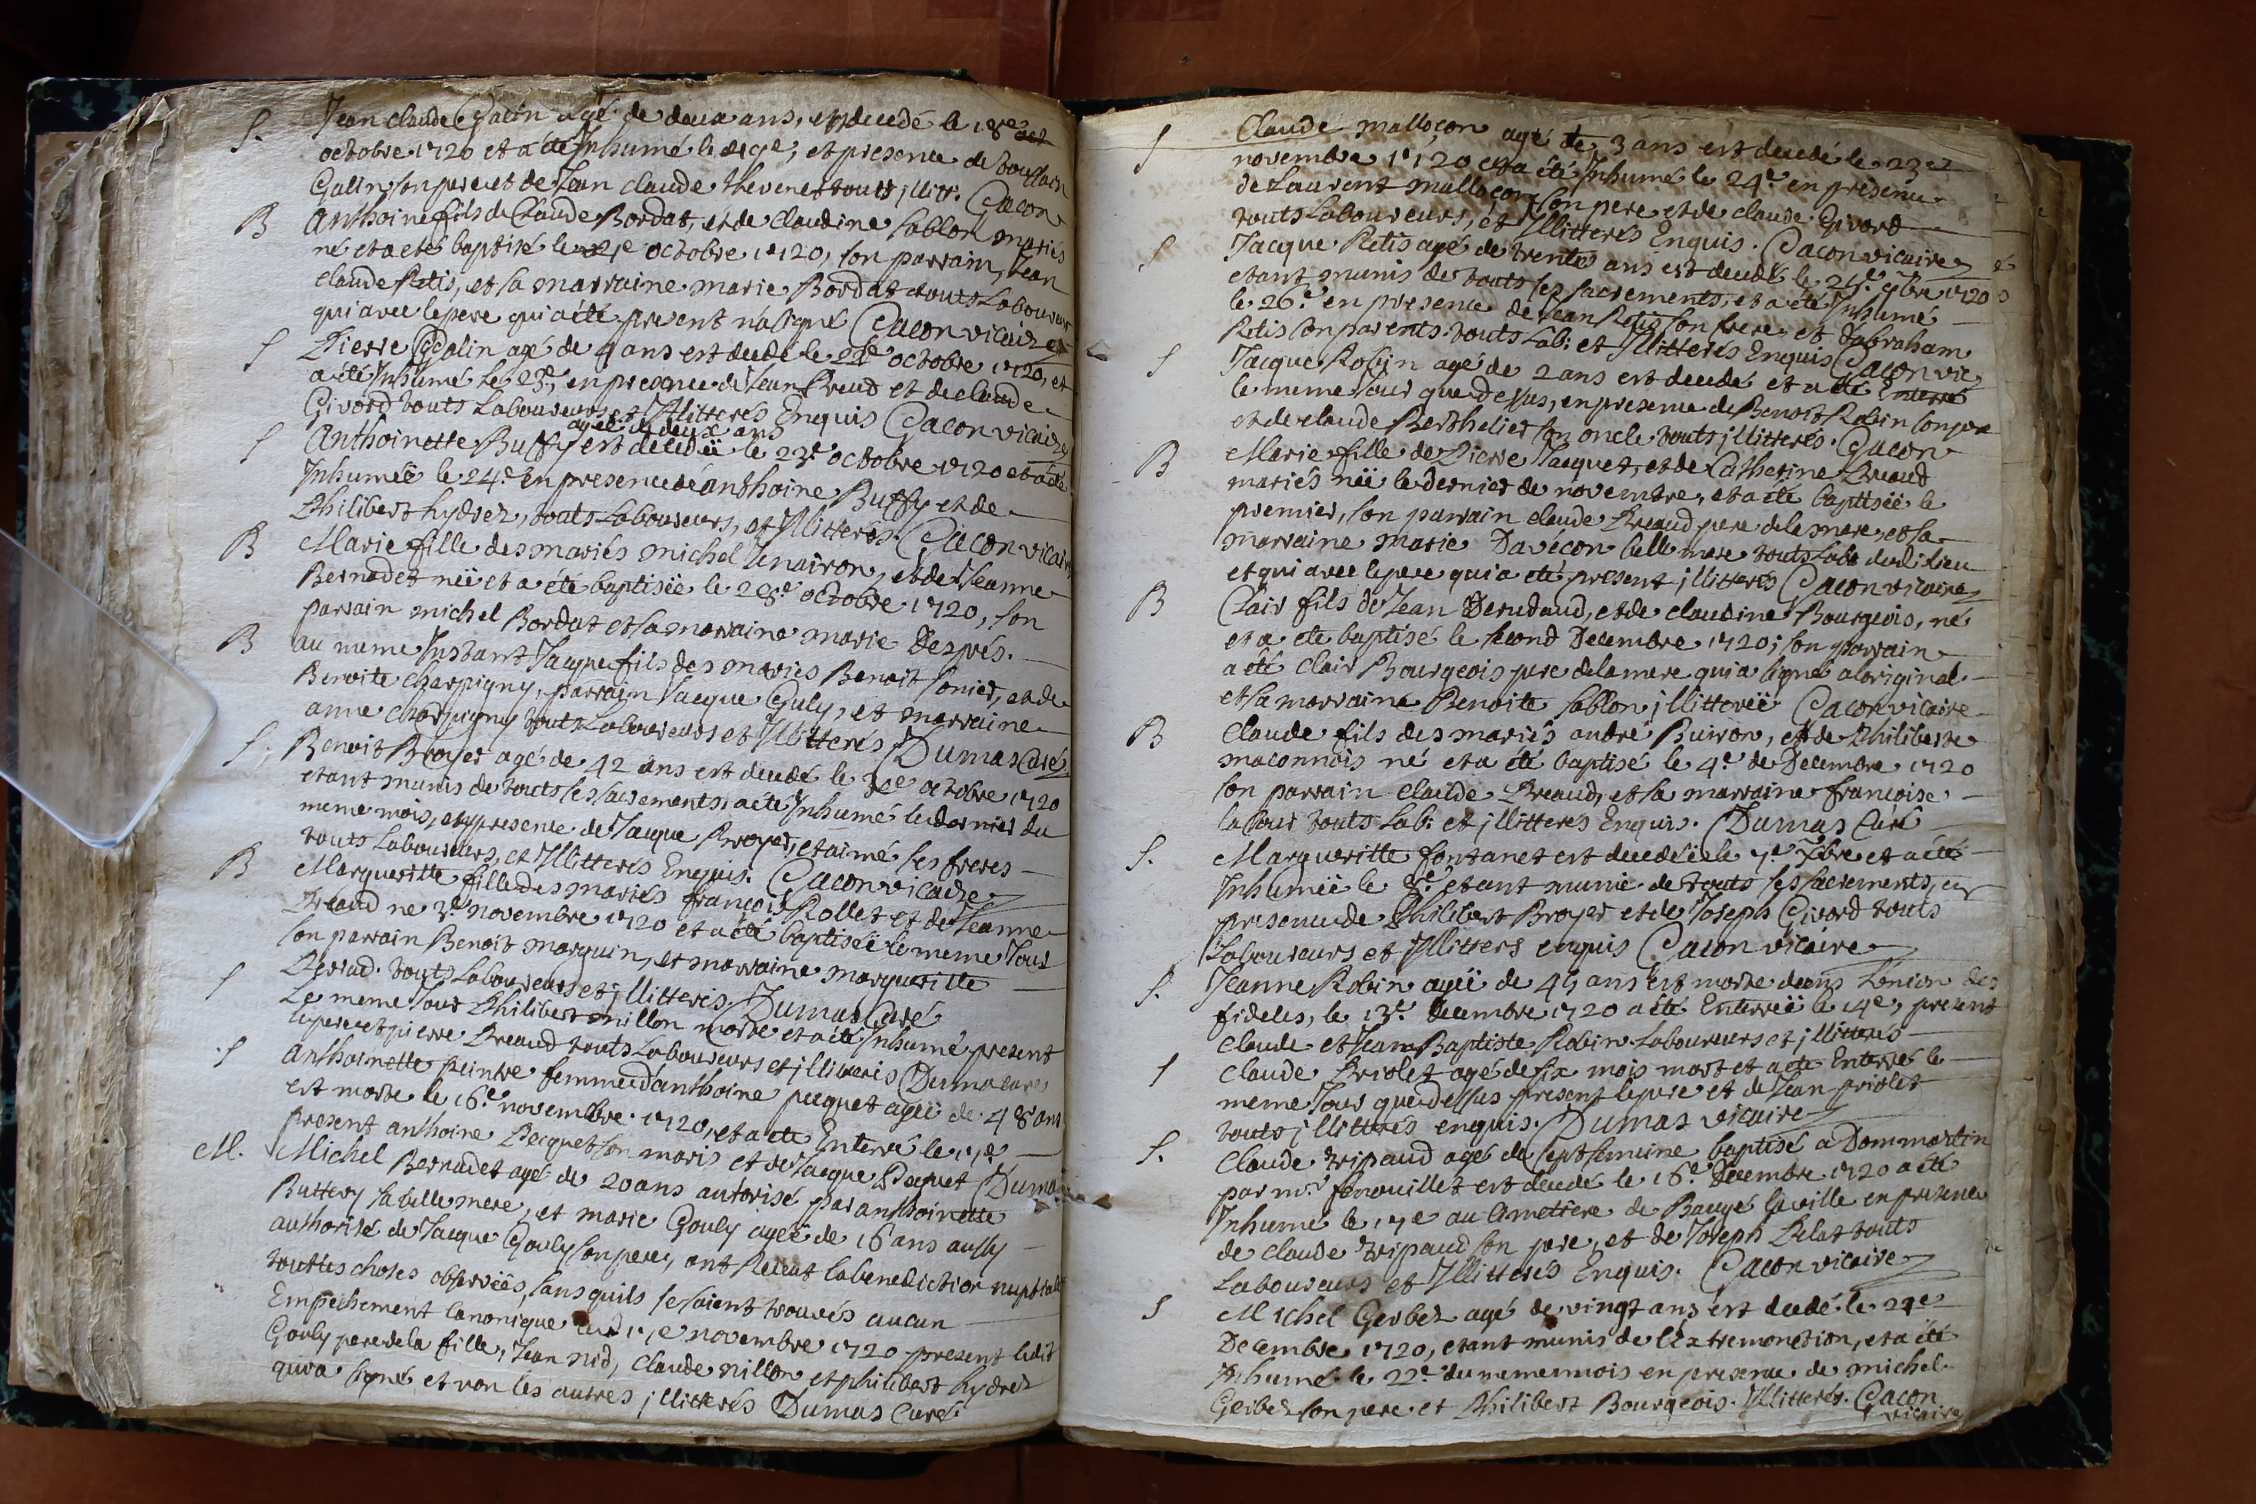 S. Jean claude Galin agé de deux ans, est decedé le 18e
octobre 1720 et a été Inhumé le 19e, et presence de toussain
Galin son pere et de Jean claude thevenet touts illit. Gacon
B Anthoine fils de Claude Bordat, et de claudine sablon mariés
né et a eté baptisé le octobre 1720, son parrain, Jean
claude Retis, et sa marraine marie Bordat touts Laboureurs
qui avec le pere qui a été present n'a signé Gacon vicaire
S Pierre Galin agé de 4 ans est decedé le 22e octobre 1720, et
a été Inhumé le 23e, en presence de Jean Breud et de claude
Givord touts Laboureurs et Illitterés Enquis Gacon vicaire
ageé de deux ans
S Anthoinette Buffy est decedëe le 23e octobre 1720 et a été
Inhumëe le 24e En presence de anthoine Buffy et de
Philibert hydrez, touts Laboureurs, et Illitterés. Gacon vicaire
B Marie fille des mariés michel Inairon, et de Jeanne
Bernadet nëe et a été baptisëe le 28e octobre 1720, son
parrain michel Bordat et sa marraine marie Desprès.
B au meme Instant Jacque fils des mariés Benoit sonier, et de
Benoite charpigny, parrain Jacque Guly, et marraine
anne charpigny touts Laboureurs et Illitterés Dumas Curé
S. Benoit Broyer agé de 42 ans est decedé le 30e octobre 1720
etant munis de touts ses sacrements, a été Inhumé le dernier du
meme mois, et presence de Jacque Broyer, et aimé ses freres
touts Laboureurs, et Illitterés Enquis. Gacon vicaire
B Margueritte fille des mariés françois Rollet et de Jeanne
Breaud ne 3e novembre 1720 et a été baptisëe le meme Jour
son parrain Benoit marguin, et marraine margueritte
touts Laboureurs et illitterés. Dumas Curé
S Le meme Jour Philibert millon morte et a été Inhumé present
le pere et pierre Breaud touts Laboureurs et illiterés Dumas curé
S anthoinette peintre femme d'anthoine pecquet ageë de 48 ans
est morte le 16e novembre. 1720, et a été Enterré le 17e
present anthoine Pecquet son maris et de Jacque Pecquet Dumas
M. Michel Bernadet agé de 20 ans autorisé par anthoinette
Buttery sa belle mere, et marie Gouly ageë de 16 ans aussy
authorisé de Jacque Gouly son pere, ont Receut la benediction nuptiale
touttes choses observëes, sans quils se soient trouvés aucun
Empechement canonique ced 17e novembre 1720 present ledit
Gouly pere de la fille, Jean nid, claude nillon et philibert hydrez
qui a signé et non les autres illitterés Dumas Curé.
S Claude mallocon agé de 3 ans est decedé le 23e
novembre 1720 et a été Inhumé le 24e en presence
de Laurent mallocon son pere et de claude Givord
touts Laboureurs, et Illitterés Enquis. Gacon vicaire
S Jacque Retis agé de trente ans est decedé le 25e 9bre 1720
etant munis de touts ses sacrements, et a été Inhumé
le 26e en presence de Jean Retis son frere et d'abraham
Retis son parents touts Lab: et Illitterés Enquis Gacon vic
S Jacque Robin agé de 2 ans est decedé et a été Enterré
le meme Jour que dessus, en presence de Benoit Robin son pere
et de claude Berthelier son oncle touts illitterés. Gacon
B Marie fille de Pierre Jacquet, et de Catherine Breaud
mariés nëe le dernier de novembre, et a été baptisëe le
premier, son parrain claude Breaud pere de la mere, et sa
marraine marie Davecon belle mere touts Lab: dudit lieu
et qui avec le pere qui a eté present illitterés Gacon vicaire
B Clair fils de Jean Derudaud, et de claudine Bourgeois, né
et a été baptisé le second Decembre 1720; son parrain
a été Clair Bourgeois pere de la mere qui a signé a loriginal.
et sa marraine Benoite sablon illitterëe Gacon vicaire
B Claude fils des mariés andré Buiron, et de Philiberte
maconnois né et a été baptisé le 4e de Decembre 1720
son parrain claude Breaud, et sa marraine francoise
labour touts Lab: et illitterés Enquis. Dumas Curé
S. Margueritte fontanet est decedëe le 7e Xbre et a été
Inhumëe le 8e etant munie de touts ses sacrements, en
presence de Philibert Broyer et de Joseph Givord touts
Laboureurs et Illitters enquis Gacon vicaire
S. Jeanne Robin ageë de 45 ans est morte dans Lunion des
fideles, le 13e Decembre 1720 a été Enterrëe le 14e, present
claude et Jean Baptiste Robin Laboureurs et illitterés
S Claude Briolet agé de six mois mort et a été Enterré le
meme Jour que dessus present le pere et de Jean priolet
touts illitterés enquis. Dumas vicaire
S. Claude tripaud agé de sept semaine baptisé a Dommartin
par mr. fenouillet est decedé le 16e Decembre 1720 a été
Inhumé le 17e au cimettiere de Baugé la ville en presence
de claude tripaud son pere, et de Joseph Pelat touts
Laboureurs et Illitterés Enquis. Gacon vicaire
S Michel Gerbez agé de vingt ans est decedé le 21e
Decembre 1720, etant munis de l'Extremonction, et a été
Inhumé le 22e du meme mois en presence de michel
Gerbez son pere et Philibert Bourgeois. Illitterés. Gacon
vicaire